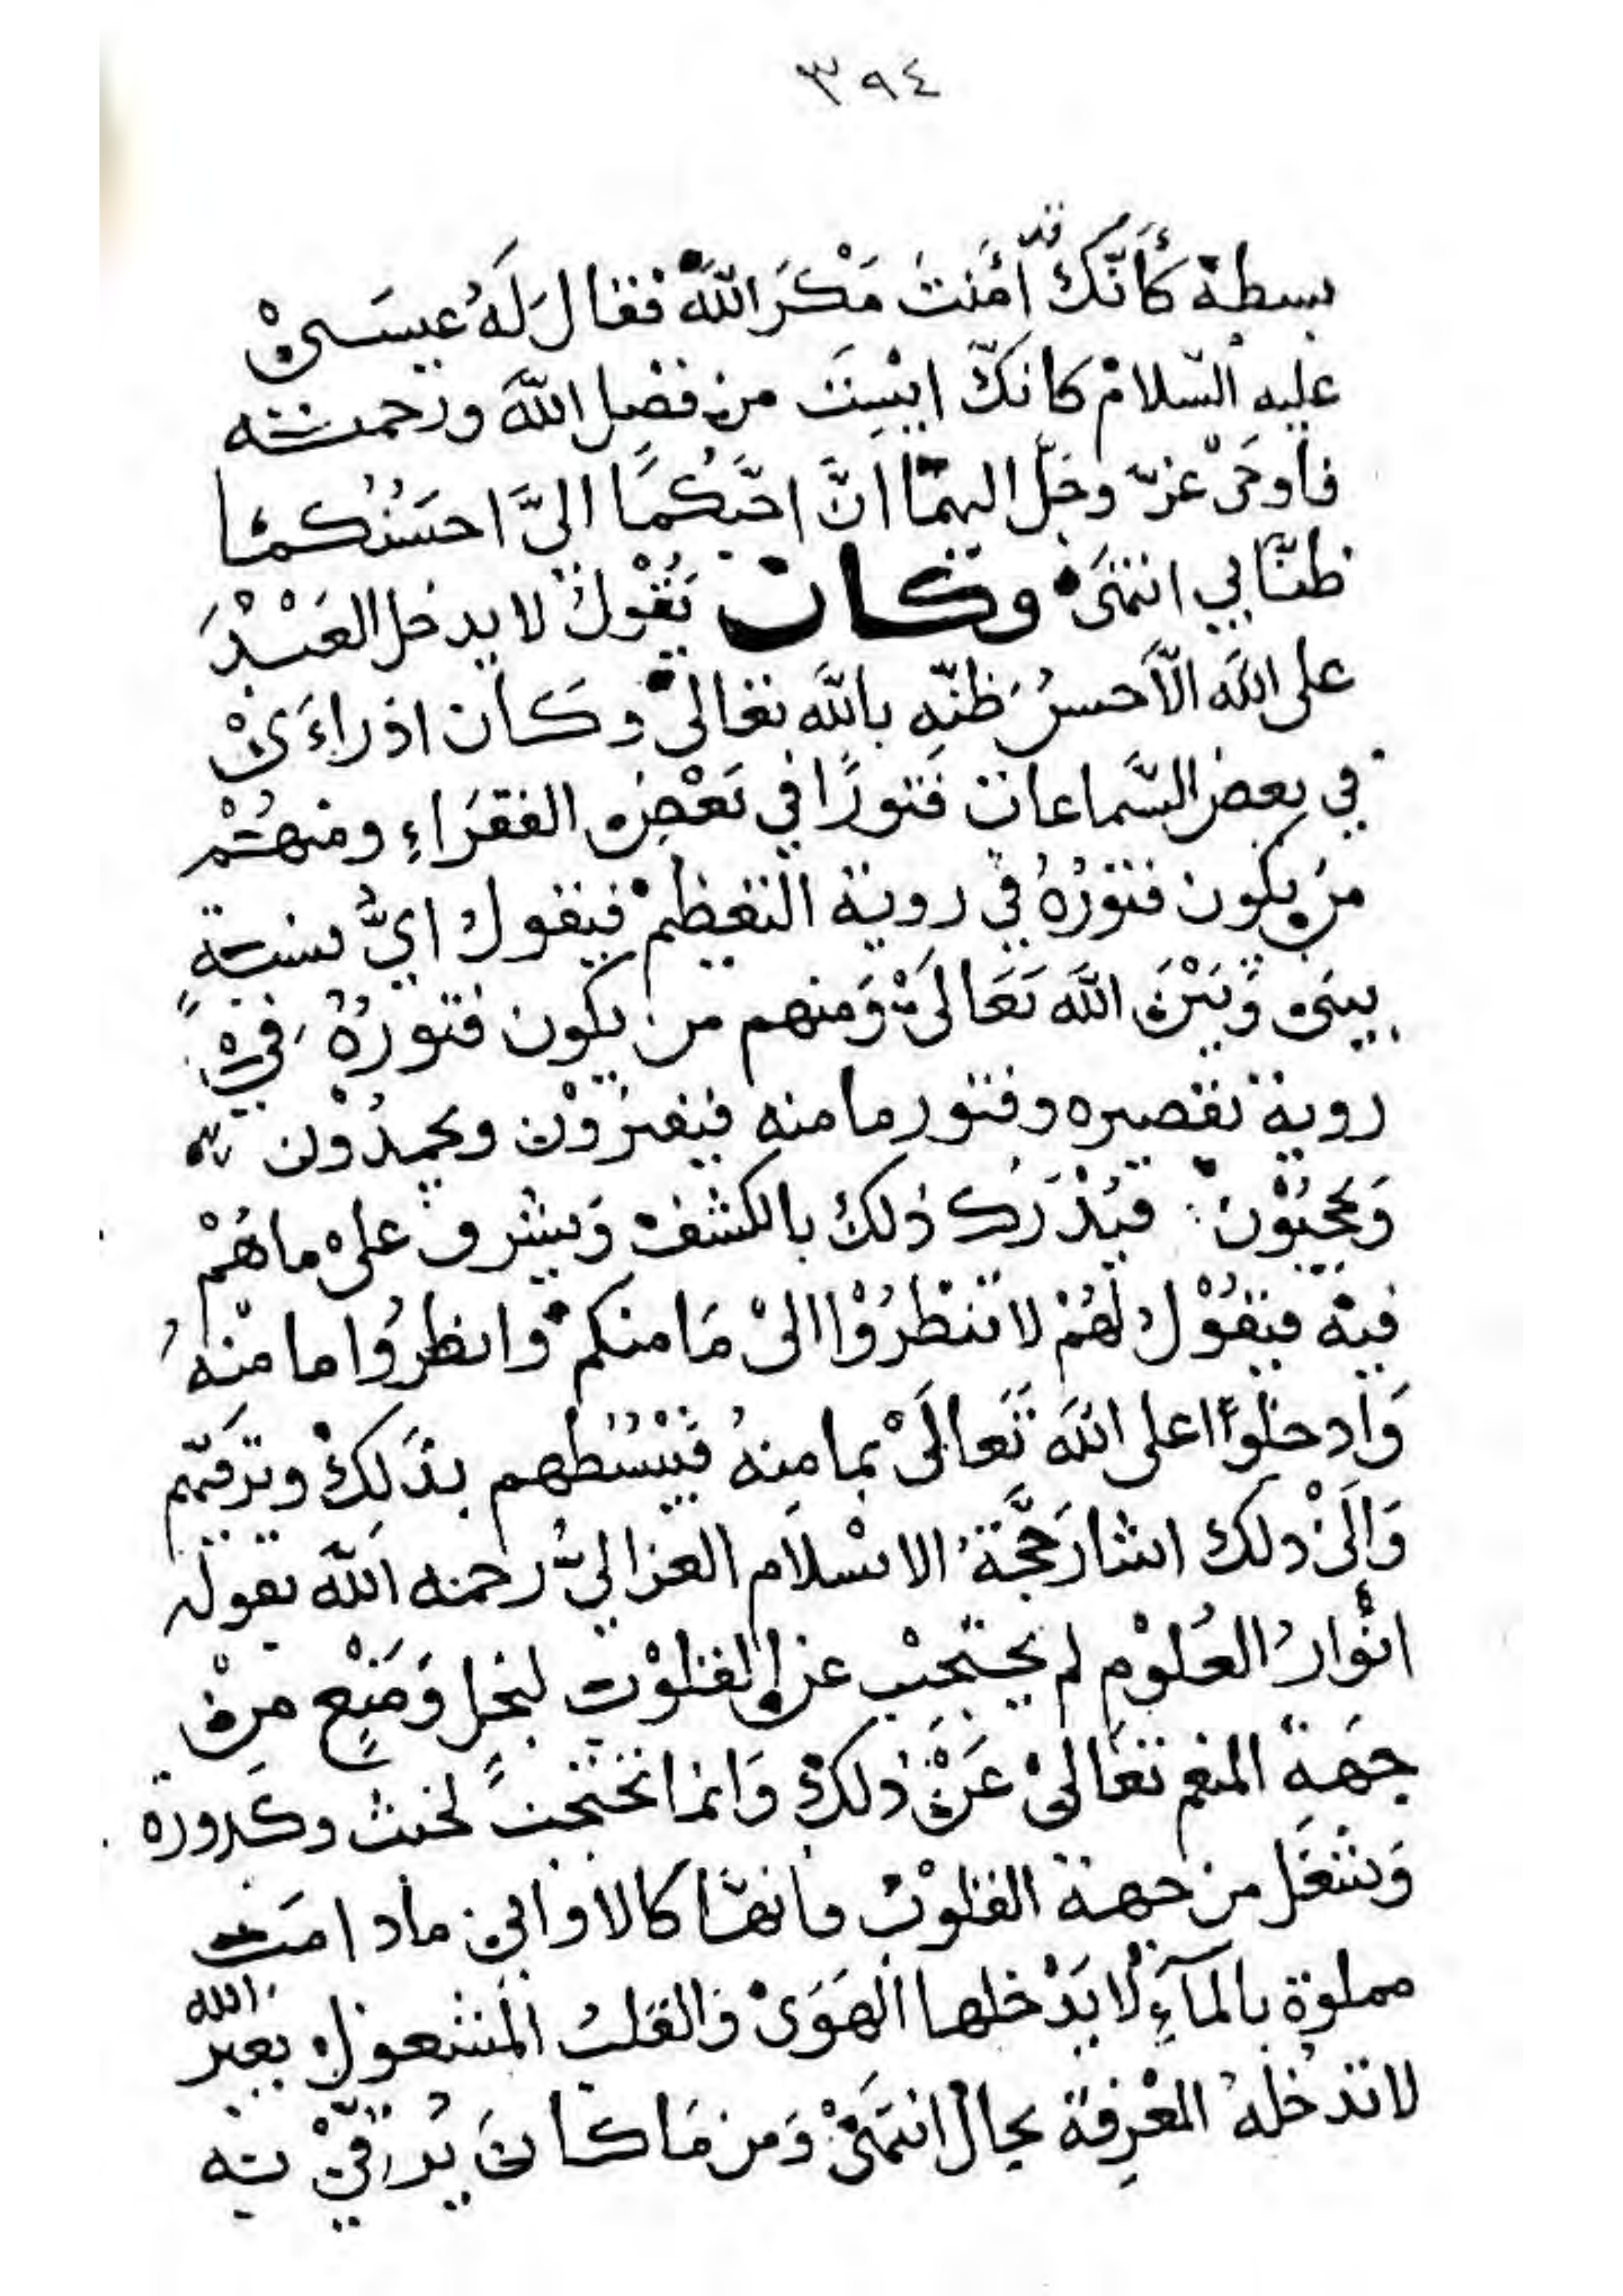 ٣٩٤
بسطه كأنّك قد أمنت مَكْرَ الله فقال لَهُ عيسَى
عليه السّلام كانكّ ايِسْتَ من فضل اللهَ ورحمته
فأوحى عزّ وجلّ اليهما انَّ احَبّكُمَا اليَّ احسَنُكُمَا
ظنّا بي انتهَى وكان يَقُول لا يدخل العَبْدُ
على الله الّا حسنُ ظنّه بالله تعالى وكان اذا راءَى
في بعض السَّماعات فتورًا في بَعْض الفقرَاءِ ومنهُمْ
من يكون فتورُهُ في روية التعظيم فيقول ايُّ نسبةٍ
بيني وَبَيْنَ الله تَعَالَى وَمنهم من يكون فتورُهُ في
روية تقصيره وفتور ما منه فيفترُوْن ويجمدُوْن
وَيحجبُوْن فيُدْرَك ذلك بالكشف وَيشرف على ما هُمْ
فيه فيَقُوْل لَهُمْ لا تنظرُوْا الىْ مَا منكم وانظرُوا ما منْهُ
وَادخلوْا على الله تَعالَىْ بما مِنهُ فَيَبْسُطهم بذَلك وترقيهم
وَالَىْ ذلك اشار حُجَّة الاسْلَام الغزاليُّ رحمه الله بقوله
انْوارُ العُلوْمِ لم يحتجبْ عن القلوْب لبخل وَمَنْع من
جهَة المنعم تعَالىْ عَنْ ذلك وَانما تحتجبُ لخبث وكدورة
وَشغل من جهة القلوْب فانها كالاوانى ما دامَت
مملوة بالمآءِ لا يَدْخلها الهَوَىْ فالقلب المشغول بغير الله
لا تدخلهُ المعْرِفة بحال انتهَىْ وَمن مَا كانَ يُرقيْ به